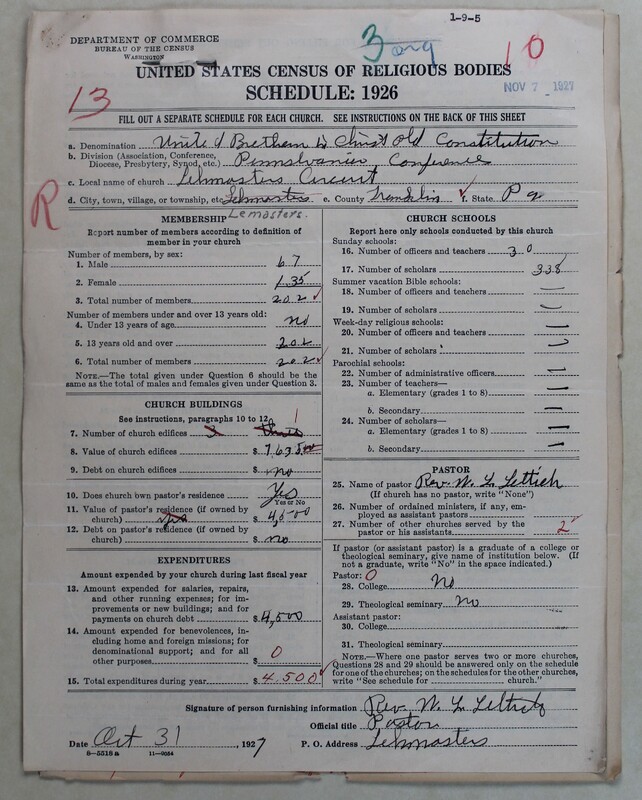 1-9-5
DEPARTMENT OF COMMERCE
BUREAU OF THE CENSUS
WASHINGTON
3 org
10
UNITED STATES CENSUS OF RELIGIOUS BODIES
NOV 7 1927
13
SCHEDULE: 1926
FILL OUT A SEPARATE SCHEDULE FOR EACH CHURCH. SEE INSTRUCTIONS ON THE BACK OF THIS SHEET
a. Denomination United Brethern in Christ Old Constitution
b. Division (Association, Conference, Diocese, Presbytery, Synod, etc.) Pennsylvania Conference
c. Local name of church Lehmasters Circuit
d. City, town, village, or township, etc. Lehmasters e. County Franklin ✓ f. State Pa
R
Lemasters.
MEMBERSHIP
Report number of members according to definition of
member in your church
Number of members, by sex:
1. Male 67
2. Female 135
3. Total number of members 202 ✓
Number of members under and over 13 years old:
4. Under 13 years of age no
5. 13 years old and over 202
6. Total number of members 202 ✓
NOTE.—The total given under Question 6 should be the
same as the total of males and females given under Question 3.
CHURCH BUILDINGS
See instructions, paragraphs 10 to 12
1
7. Number of church edifices 3 three
8. Value of church edifices $
9. Debt on church edifices $ no
10. Does church own pastor's residence Yes
Yes or No
11. Value of pastor's residence (if owned by
church) yes $ 4,500
12. Debt on pastor's residence (if owned by
church) $ no
EXPENDITURES
Amount expended by your church during last fiscal year
13. Amount expended for salaries, repairs,
and other running expenses; for im-
provements or new buildings; and for
payments on church debt $ 4,500
14. Amount expended for benevolences, in-
cluding home and foreign missions; for
denominational support; and for all
other purposes $ 0
15. Total expenditures during year $ 4.500 ✓
CHURCH SCHOOLS
Report here only schools conducted by this church
Sunday schools:
16. Number of officers and teachers 30
17. Number of scholars 338
Summer vacation Bible schools:
18. Number of officers and teachers —
19. Number of scholars —
Week-day religious schools:
20. Number of officers and teachers —
21. Number of scholars —
Parochial schools:
22. Number of administrative officers —
23. Number of teachers—
a. Elementary (grades 1 to 8) —
b. Secondary —
24. Number of scholars—
a. Elementary (grades 1 to 8) —
b. Secondary —
PASTOR
25. Name of pastor Rev. W. L.
(If church has no pastor, write "None")
26. Number of ordained ministers, if any, em-
ployed as assistant pastors
27. Number of other churches served by the
pastor or his assistants 2
If pastor (or assistant pastor) is a graduate of a college or
theological seminary, give name of institution below. (If
not a graduate, write "No" in the space indicated.)
Pastor: 0
28. College No
29. Theological seminary No
Assistant pastor:
30. College
31. Theological seminary
NOTE.—Where one pastor serves two or more churches,
Questions 28 and 29 should be answered only on the schedule
for one of the churches; on the schedules for the other churches,
write "See schedule for church."
Signature of person furnishing information Rev. W. L.
Official title Pastor
Date Oct 31, 1927 P. O. Address Lehmasters
8—5516 a 11—9054